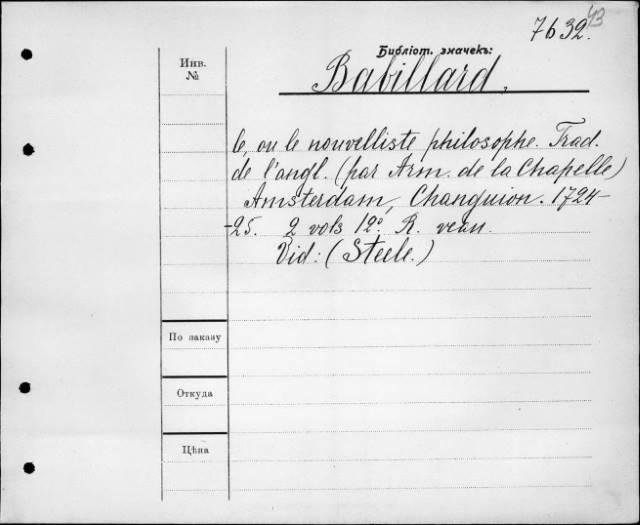 43
7632.
Библіот. значекъ:
Инв.
№
Babillard,
le, ou le nouvelliste philosophe. Trad.
de l'angl. (par Arm. de la Chapelle)
Amsterdam, Changuion. 1724-
-25. 2 vols 12º. R. veau.
Vid: (Steele.)
По заказу
Откуда
Цѣна